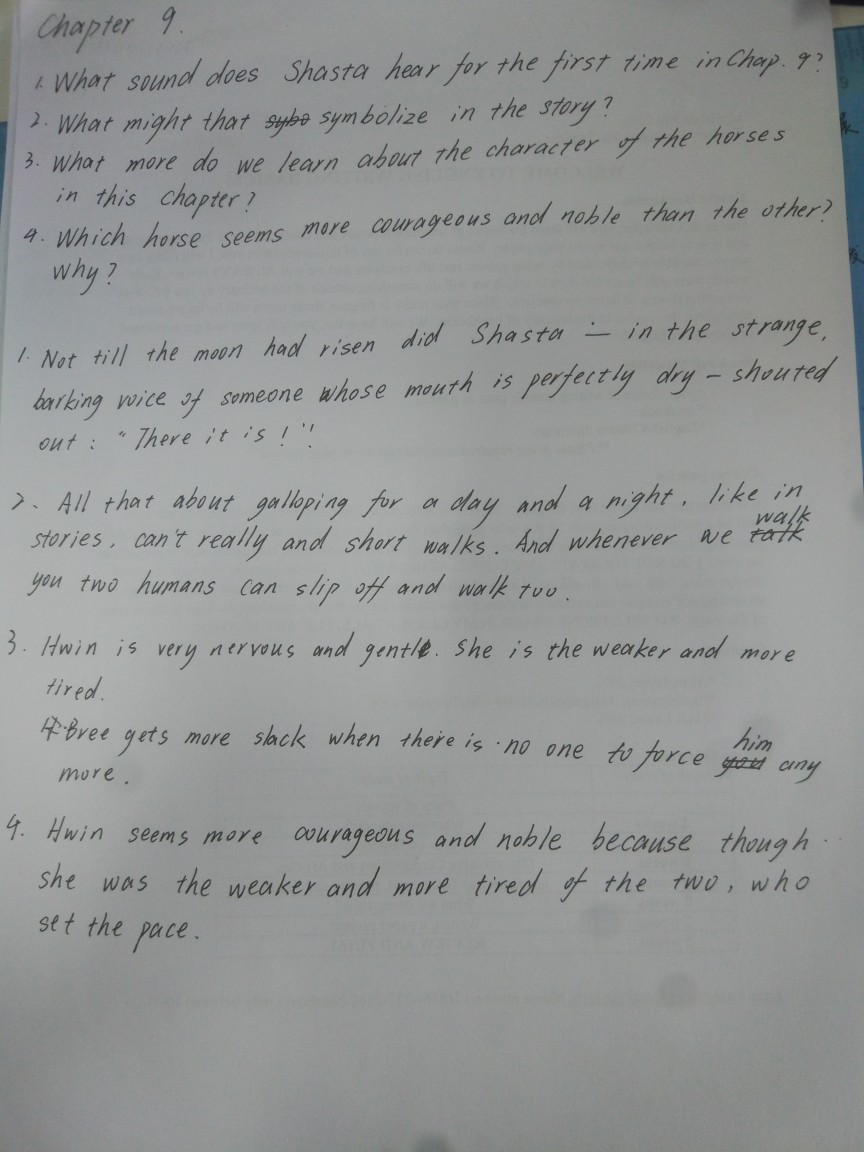 Chapter 9.
1. What sound does Shasta hear for the first time in Chap. 9?
2. What might that sybo symbolize in the story?
3. What more do we learn about the character of the horses
in this chapter?
4. Which horse seems more courageous and noble than the other?
Why?
1. Not till the moon had risen did Shasta — in the strange,
barking voice of someone whose mouth is perfectly dry — shouted
out : "There it is ! "!
2. All that about galloping for a day and a night, like in
stories, can't really and short walks. And whenever we talk walk
you two humans can slip off and walk too.
3. Hwin is very nervous and gentle. She is the weaker and more
tired.
4. Bree gets more slack when there is no one to force you him any
more.
4. Hwin seems more courageous and noble because though
she was the weaker and more tired of the two, who
set the pace.